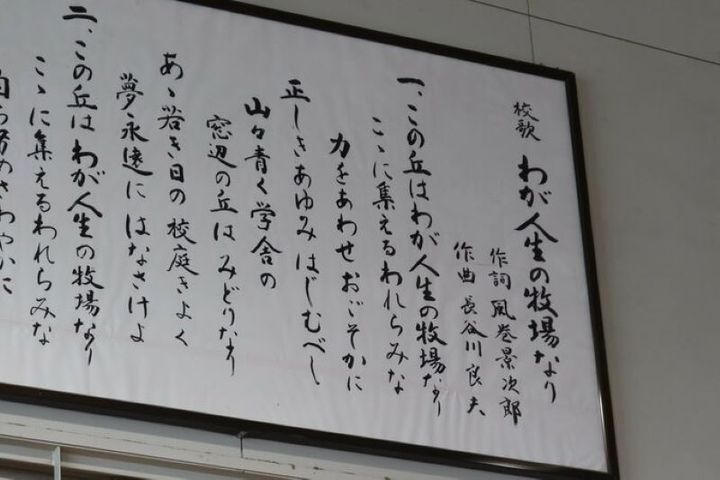 校歌 わが人生の牧場なり
作詞 風巻景次郎
作曲 長谷川良夫
一、この丘はわが人生の牧場なり
こゝに集えるわれらみな
力をあわせおごそかに
正しきあゆみはじむべし
山々青く学舎の
窓辺の丘はみどりなり
あゝ若き日の校庭きよく
夢永遠にはなさけよ
二、この丘はわが人生の牧場なり
こゝに集えるわれらみな